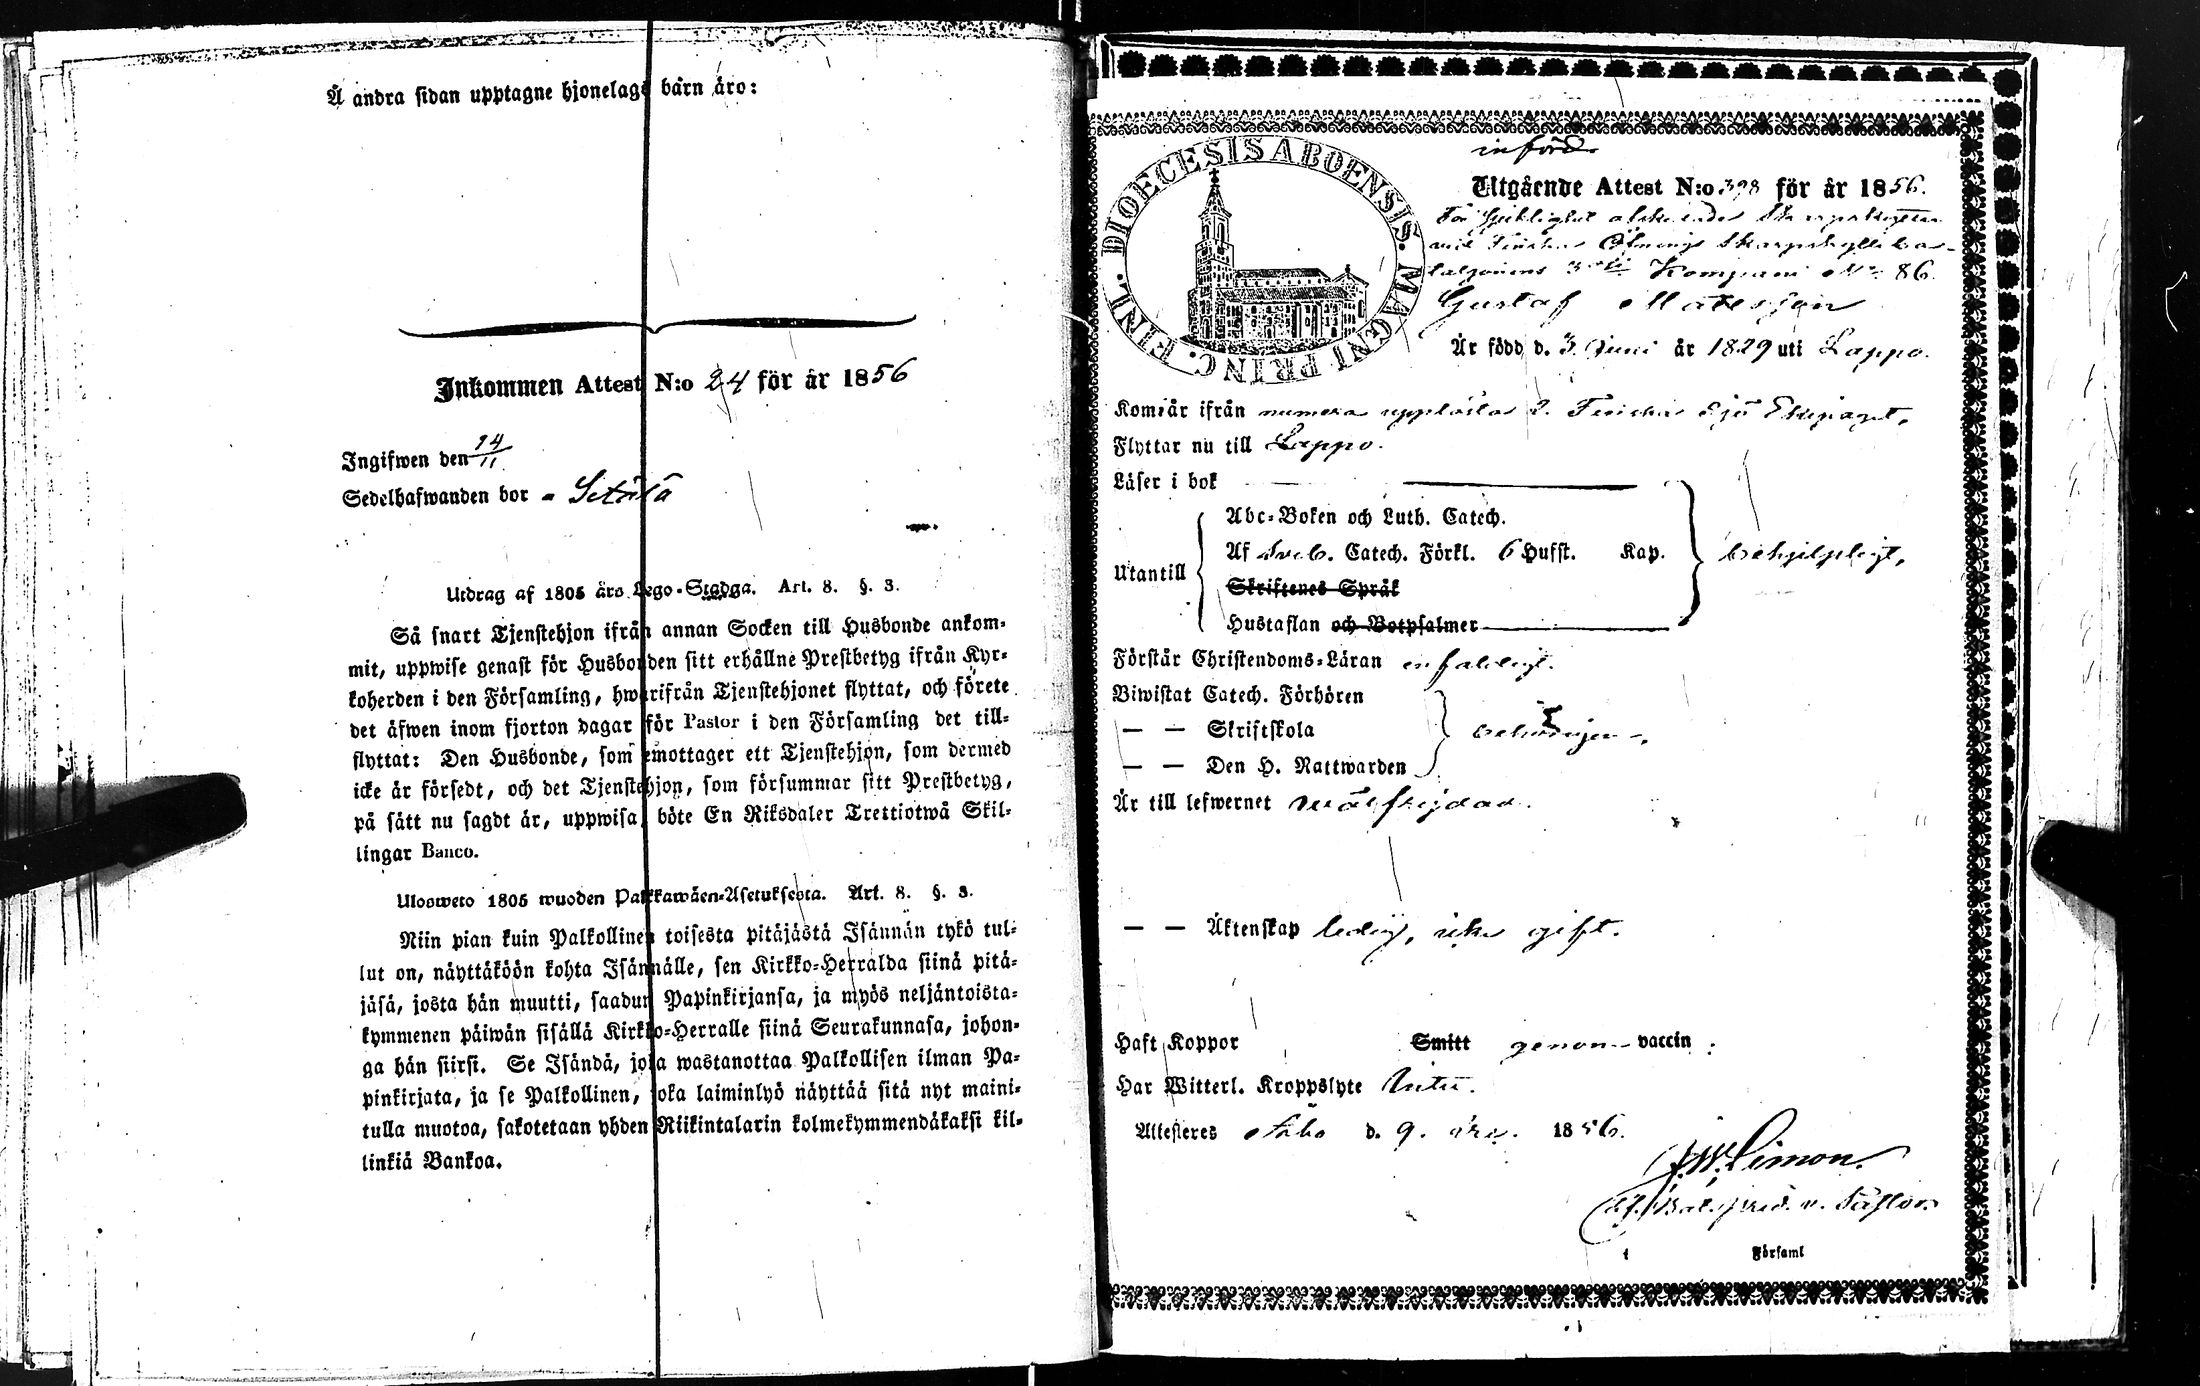 Å andra sidan upptagne hjonelags barn äro:
Inkommen Attest N:o 24 för år 1856
Ingifwen den 14/11
Sedelhafwanden bor - Setälä
Utdrag af 1805 års Lego-Stadga. Art. 8. §. 3.
Så snart Tjenstehjon ifrån annan Socken till Husbonde ankom-
mit, uppwise genast för Husbonden sitt erhållne Prestbetyg ifrån Kyr-
koherden i den Församling, hwarifrån Tjenstehjonet flyttat, och förete
det äfwen inom fjorton dagar för Pastor i den Församling det till-
flyttat: Den Husbonde, som emottager ett Tjenstehjon, som dermed
icke är försedt, och det Tjenstehjon, som försummar sitt Prestbetyg,
på sätt nu sagdt är, uppwisa, böte En Riksdaler Trettiotwå Skil-
lingar Banco.
Ulosweto 1805 wuoden Palkkawäen-Asetuksesta. Art. 8. §. 3.
Niin pian kuin Palkollinen toisesta pitäjästä Isännän tykö tul-
lut on, näyttäköön kohta Isännälle, sen Kirkko-Herralda siinä pitä-
jäsä, josta hän muutti, saadun Papinkirjansa, ja myös neljäntoista-
kymmenen päiwän sisällä Kirkko-Herralle siinä Seurakunnasa, johon-
ga hän siirsi. Se Isändä, joka wastanottaa Palkollisen ilman Pa-
pinkirjata, ja se Palkollinen, joka laiminlyö näyttää sitä nyt maini-
tulla muotoa, sakotetaan yhden Riikintalarin kolmekymmendäkaksi kil-
linkiä Bankoa.
införd
DIOECESIS ABOENSIS. MAGNI PRINC. FINL.
Utgående Attest N:o 398 för år 1856.
För sjuklighet afskedade Skarpskytten
vid Finska Skarpskytte ba-
taljonens 3dje Kompani No 86
Gustaf Matsson
Är född d. 3 Juni år 1829 uti Lappo.
Kom:är ifrån numera upplösta 2. Finska Sjö Ekipaget,
Flyttar nu till Lappo.
Läser i bok
Utantill
Abc-Boken och Luth. Catech.
Af Sveb. Catech. Förkl. 6 Hufst. Kap.
Skriftenes Språk
Hustaflan och Botpsalmer
behjelpligt,
Förstår Christendoms-Läran enfaldigt.
Biwistat Catech. Förhören
— — Skriftskola
— — Den H. Nattwarden
behörigen
Är till lefwernet wälfrejdad.
— — Äktenskap ledig, icke gift.
Haft Koppor Smitt genom vaccin
Har Witterl. Kroppslyte
Attesteres Åbo d. 9. 1856.
Simon.
Församl